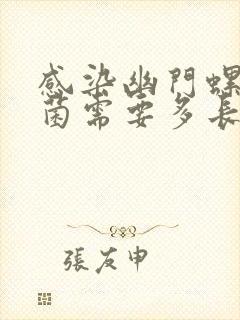 感染幽門螺
菌需要多長
張友申